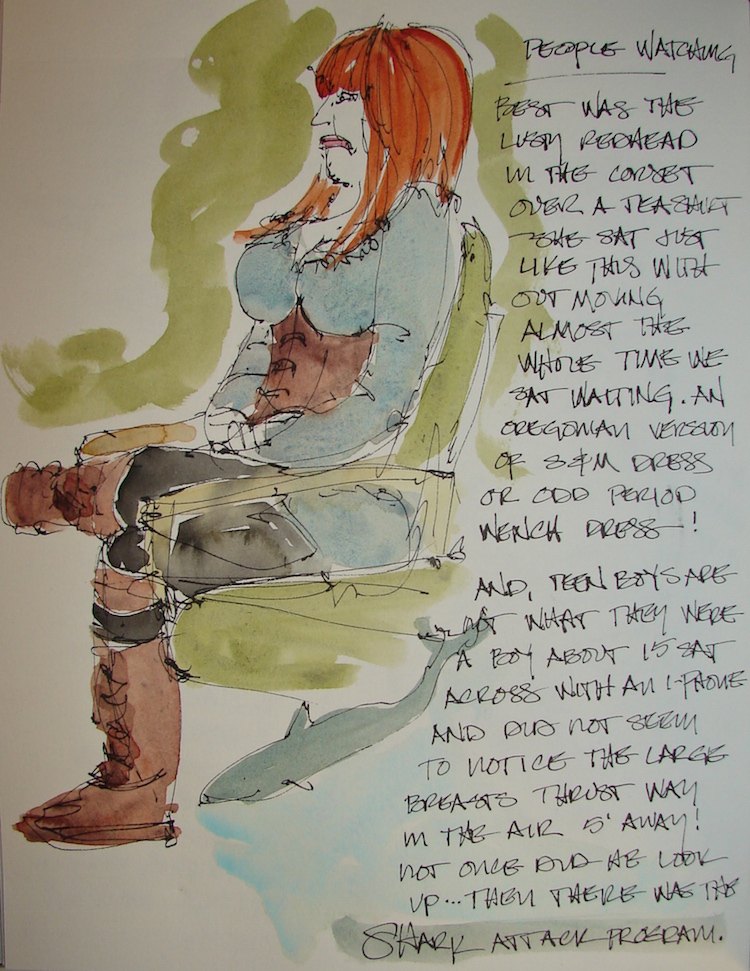 PEOPLE WATCHING
BEST WAS THE
LUSTY REDHEAD
IN THE CORSET
OVER A TEASHIRT
~SHE SAT JUST
LIKE THIS WITH
OUT MOVING
ALMOST THE
WHOLE TIME WE
SAT WAITING. AN
OREGONIAN VERSION
OF S&M DRESS
OR ODD PERIOD
WENCH DRESS~!
AND, TEEN BOYS ARE
NOT WHAT THEY WERE
A BOY ABOUT 15 SAT
ACROSS WITH AN I-PHONE
AND DID NOT SEEM
TO NOTICE THE LARGE
BREASTS THRUST WAY
IN THE AIR 5' AWAY!
NOT ONCE DID HE LOOK
UP...THEN THERE WAS THE
SHARK ATTACK PROGRAM.